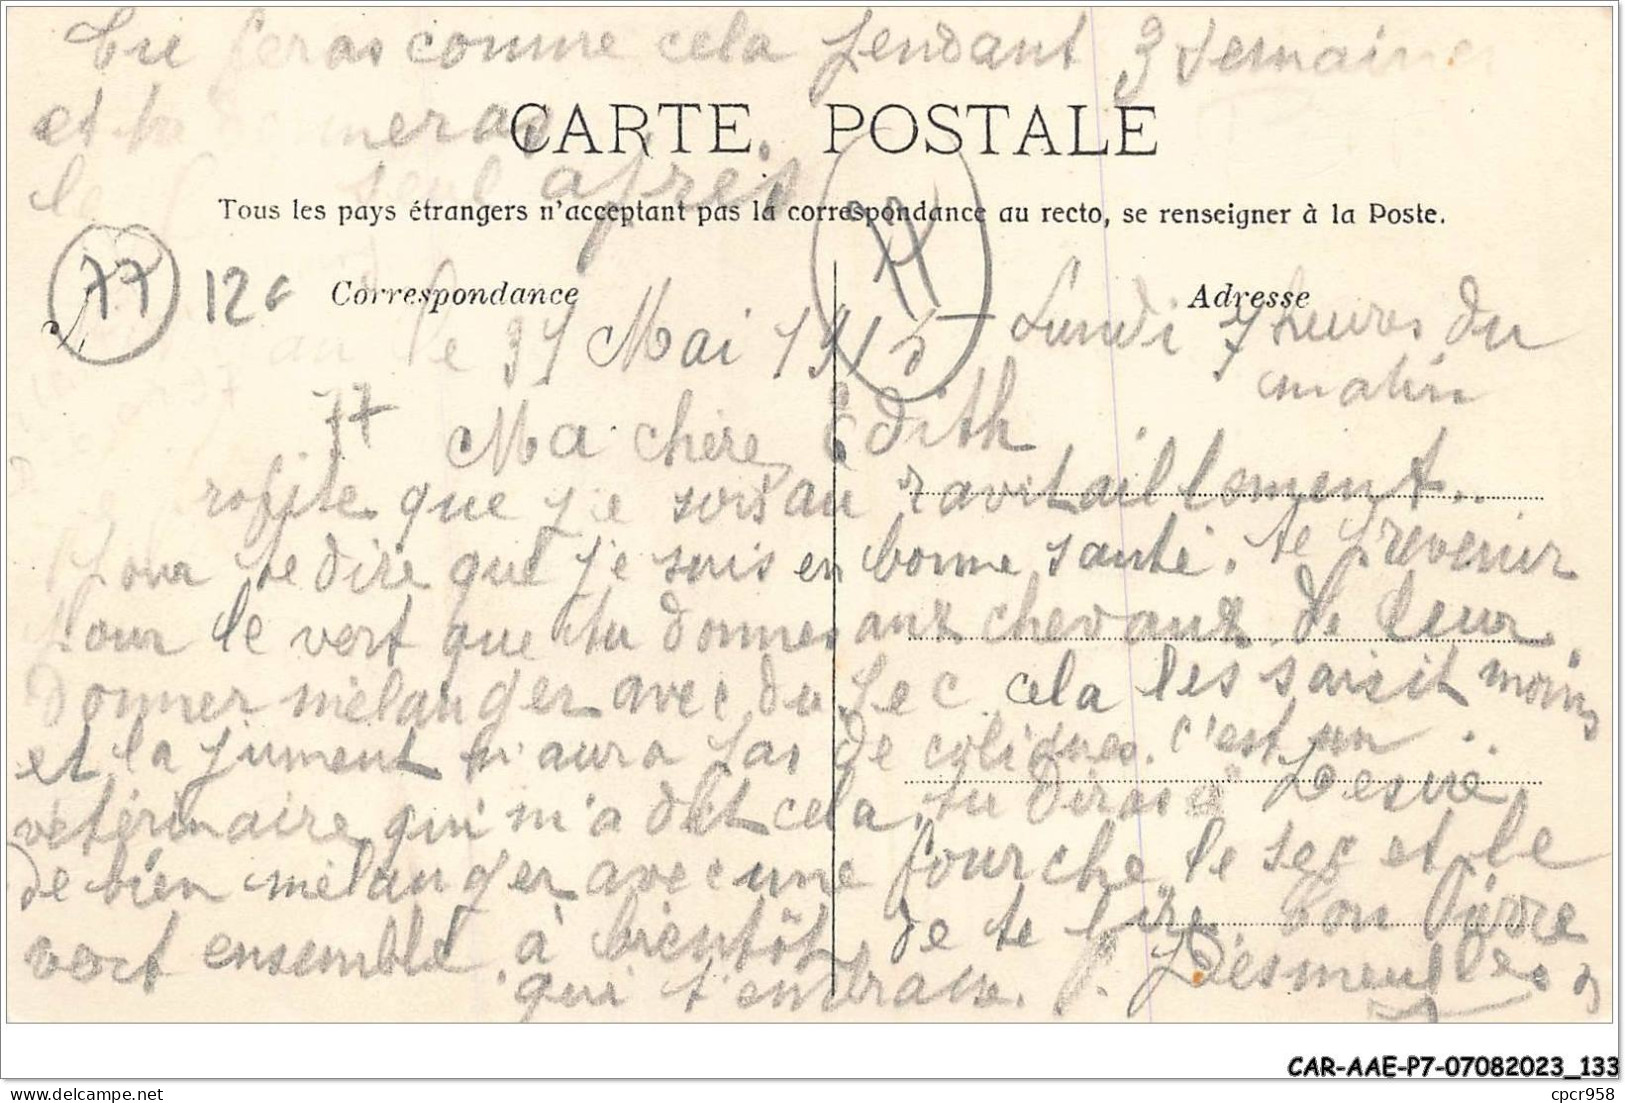 tu feras comme cela pendant 3 semaines
et tu donneras
le seul après
CARTE POSTALE
Tous les pays étrangers n'acceptant pas la correspondance au recto, se renseigner à la Poste.
77 12c Correspondance 77 Adresse
le 31 Mai 1915 Lundi 7 heures du
matin
77 Ma chère Edith
rofite que je suis au ravitaillement..
pour te dire que je suis en bonne santé. te prevenir
pour le vert que tu donnes aux chevaux de leur
donner mélanger avec du sec cela les saisit moins
et la jument n'aura pas de coliques. c'est un ..
vétérinaire qui m'a dit cela, tu diras à Desiré
de bien mélanger avec une fourche le sec et le
vert ensemble à bientôt de te lire. ton Pierre
qui t'embrasse. P. Desmeulles
CAR-AAE-P7-07082023_133
delcampe.net
cpcr958